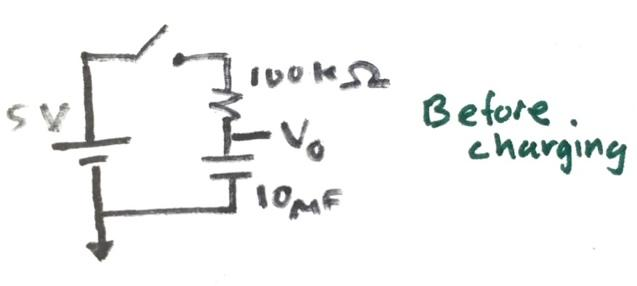 100kΩ
5V
V₀
10μF
Before
charging